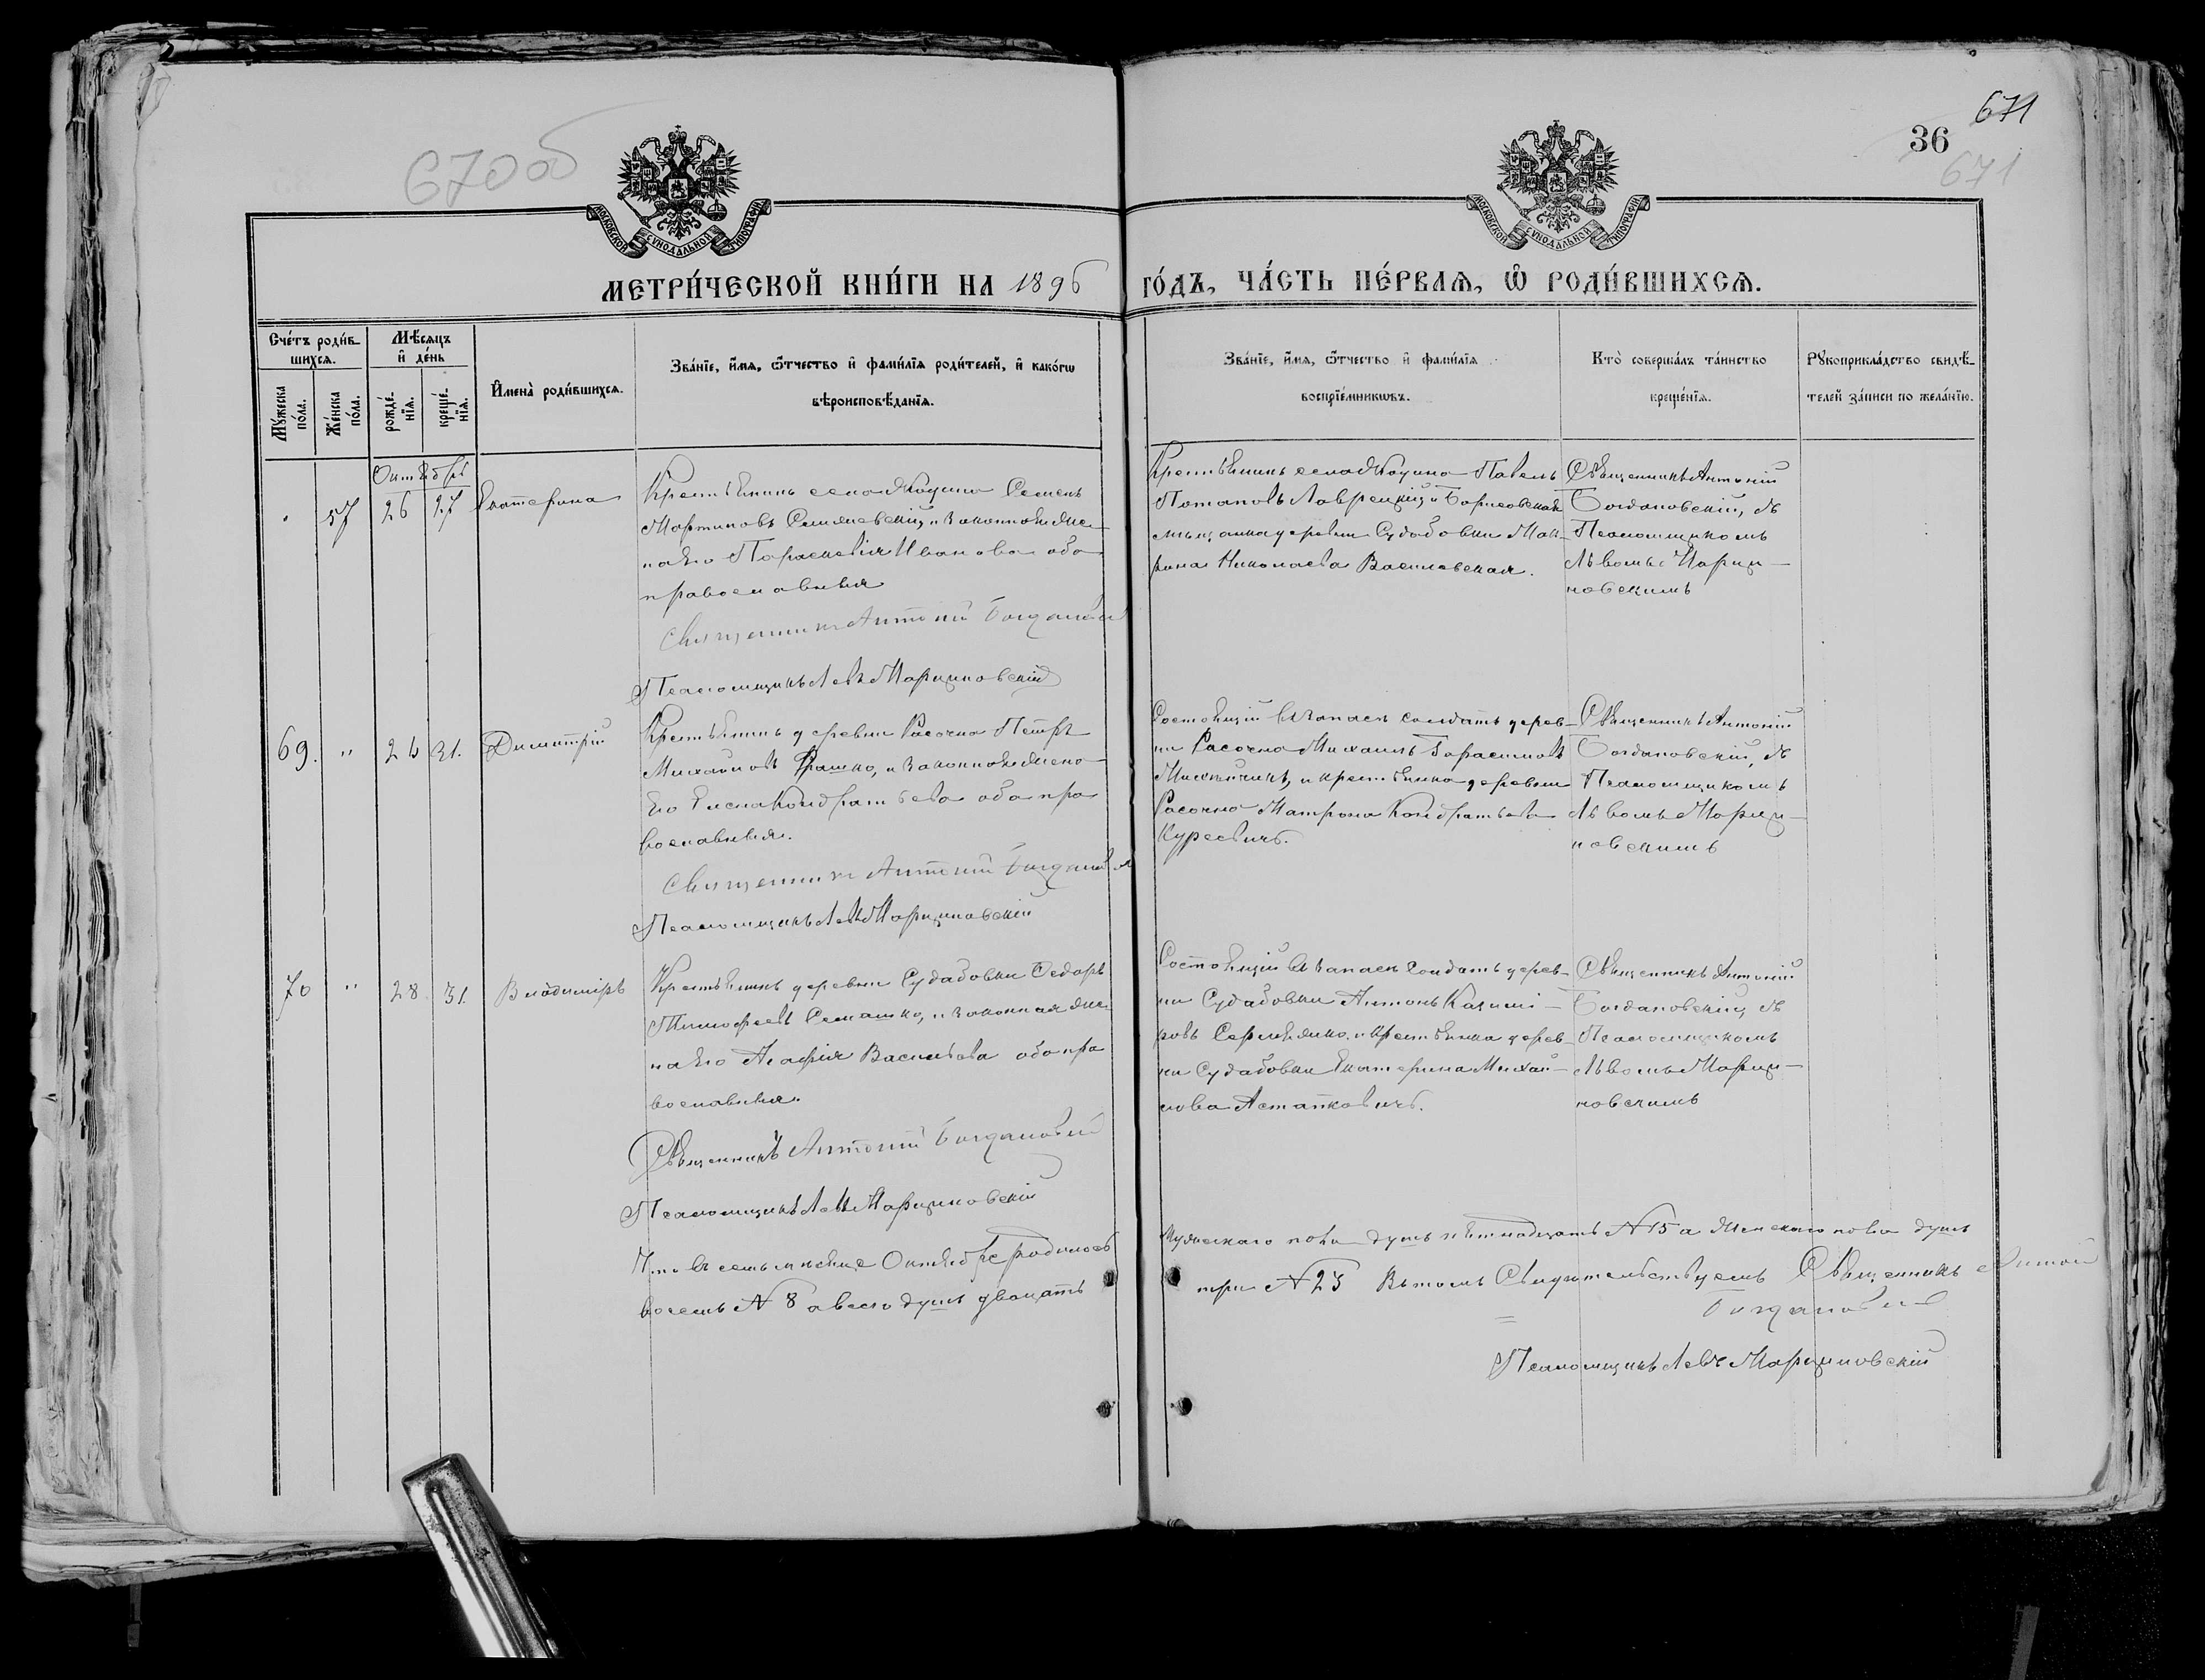 670об
671
36
671
МОСКОВСКОЙ СѴНОДАЛЬНОЙ ТИПОГРАФІИ
МОСКОВСКОЙ СѴНОДАЛЬНОЙ ТИПОГРАФІИ
МЕТРИ́ЧЕСКОЙ КНИ́ГИ НА 1896 ГО́ДЪ, ЧА́СТЬ ПЕ́РВАѦ, Ѡ҆ РОДИ́ВШИХСѦ.
Сче́тъ роди́в-
шихсѧ.
Мꙋ́жеска по́ла.
Же́нска по́ла.
Мѣ́сѧцъ
и҆ де́нь
рожде́-
нїѧ.
креще́-
нїѧ.
И҆мена̀ роди́вшихсѧ.
Зва́нїе, и҆́мѧ, ѻ҆́тчество и҆ фами́лїѧ роди́телей, и҆ како́гѡ
вѣроисповѣ́данїѧ.
Зва́нїе, и҆́мѧ, ѻ҆́тчество и҆ фами́лїѧ
воспрїе́мникѡвъ.
Кто̀ соверша́лъ та́инство
креще́нїѧ.
Рꙋкоприкла́дство свидѣ́-
телей за́писи по жела́нїю.
Октябрь
57 26 27 Екатерина
Крестьянинъ села Жодино Семенъ
Мартиновъ и законная же-
на его Параскевія Иванова оба
православныя
Священникъ Антоній Богданов
Псаломщикъ Левъ Марциновскій
Крестьянинъ села Жодино Павелъ
Потаповъ Лаврецкій, и Борисовская
мѣщанка деревни Судобовки Мат-
рона Николаева Василевская.
Священникъ Антоній
Богдановскій, съ
Псаломщикомъ
Львомъ Марци-
новскимъ
69. " 26 31. Димитрій
Крестьянинъ деревни Расочно Петръ
Михайловъ Фрашко, и законная жена
его Кондратьева оба пра
вославныя.
Священникъ Антоній Богданов
Псаломщикъ Левъ Марциновскій
Состоящій въ запасѣ солдатъ дерев-
ни Расочно Михаилъ Гарасимовъ
и крестьянка деревни
Расочно Матрона Кондратьева
Куревичъ.
Священникъ Антоній
Богдановскій, съ
Псаломщикомъ
Львомъ Марци-
новскимъ
70 " 28 31. Владиміръ
Крестьянинъ деревни Судабовки Ѳедоръ
Тимофеевъ Семашко, и законная же
на его Агафія Васильева оба пра
вославныя.
Священникъ Антоній Богданов
Псаломщикъ Левъ Марциновскій
Состоящій въ запасѣ солдатъ дерев-
ни Судабовки Антонъ Казимі-
ровъ и крестьянка дерев-
ни Судабовки Екатерина Михай-
лова Астапковичъ.
Священникъ Антоній
Богдановскій, съ
Псаломщикомъ
Львомъ Марци-
новскимъ
Что въ семъ мѣсяце Октябре родилось
Мужескаго пола душъ пятнадцать N 15 а Женскаго пола душъ
восемь N 8 а всего душъ двацать
три N 23 Въ томъ Свидѣтельствуемъ Священникъ Антон
Богданов
Псаломщикъ Левъ Марциновскій